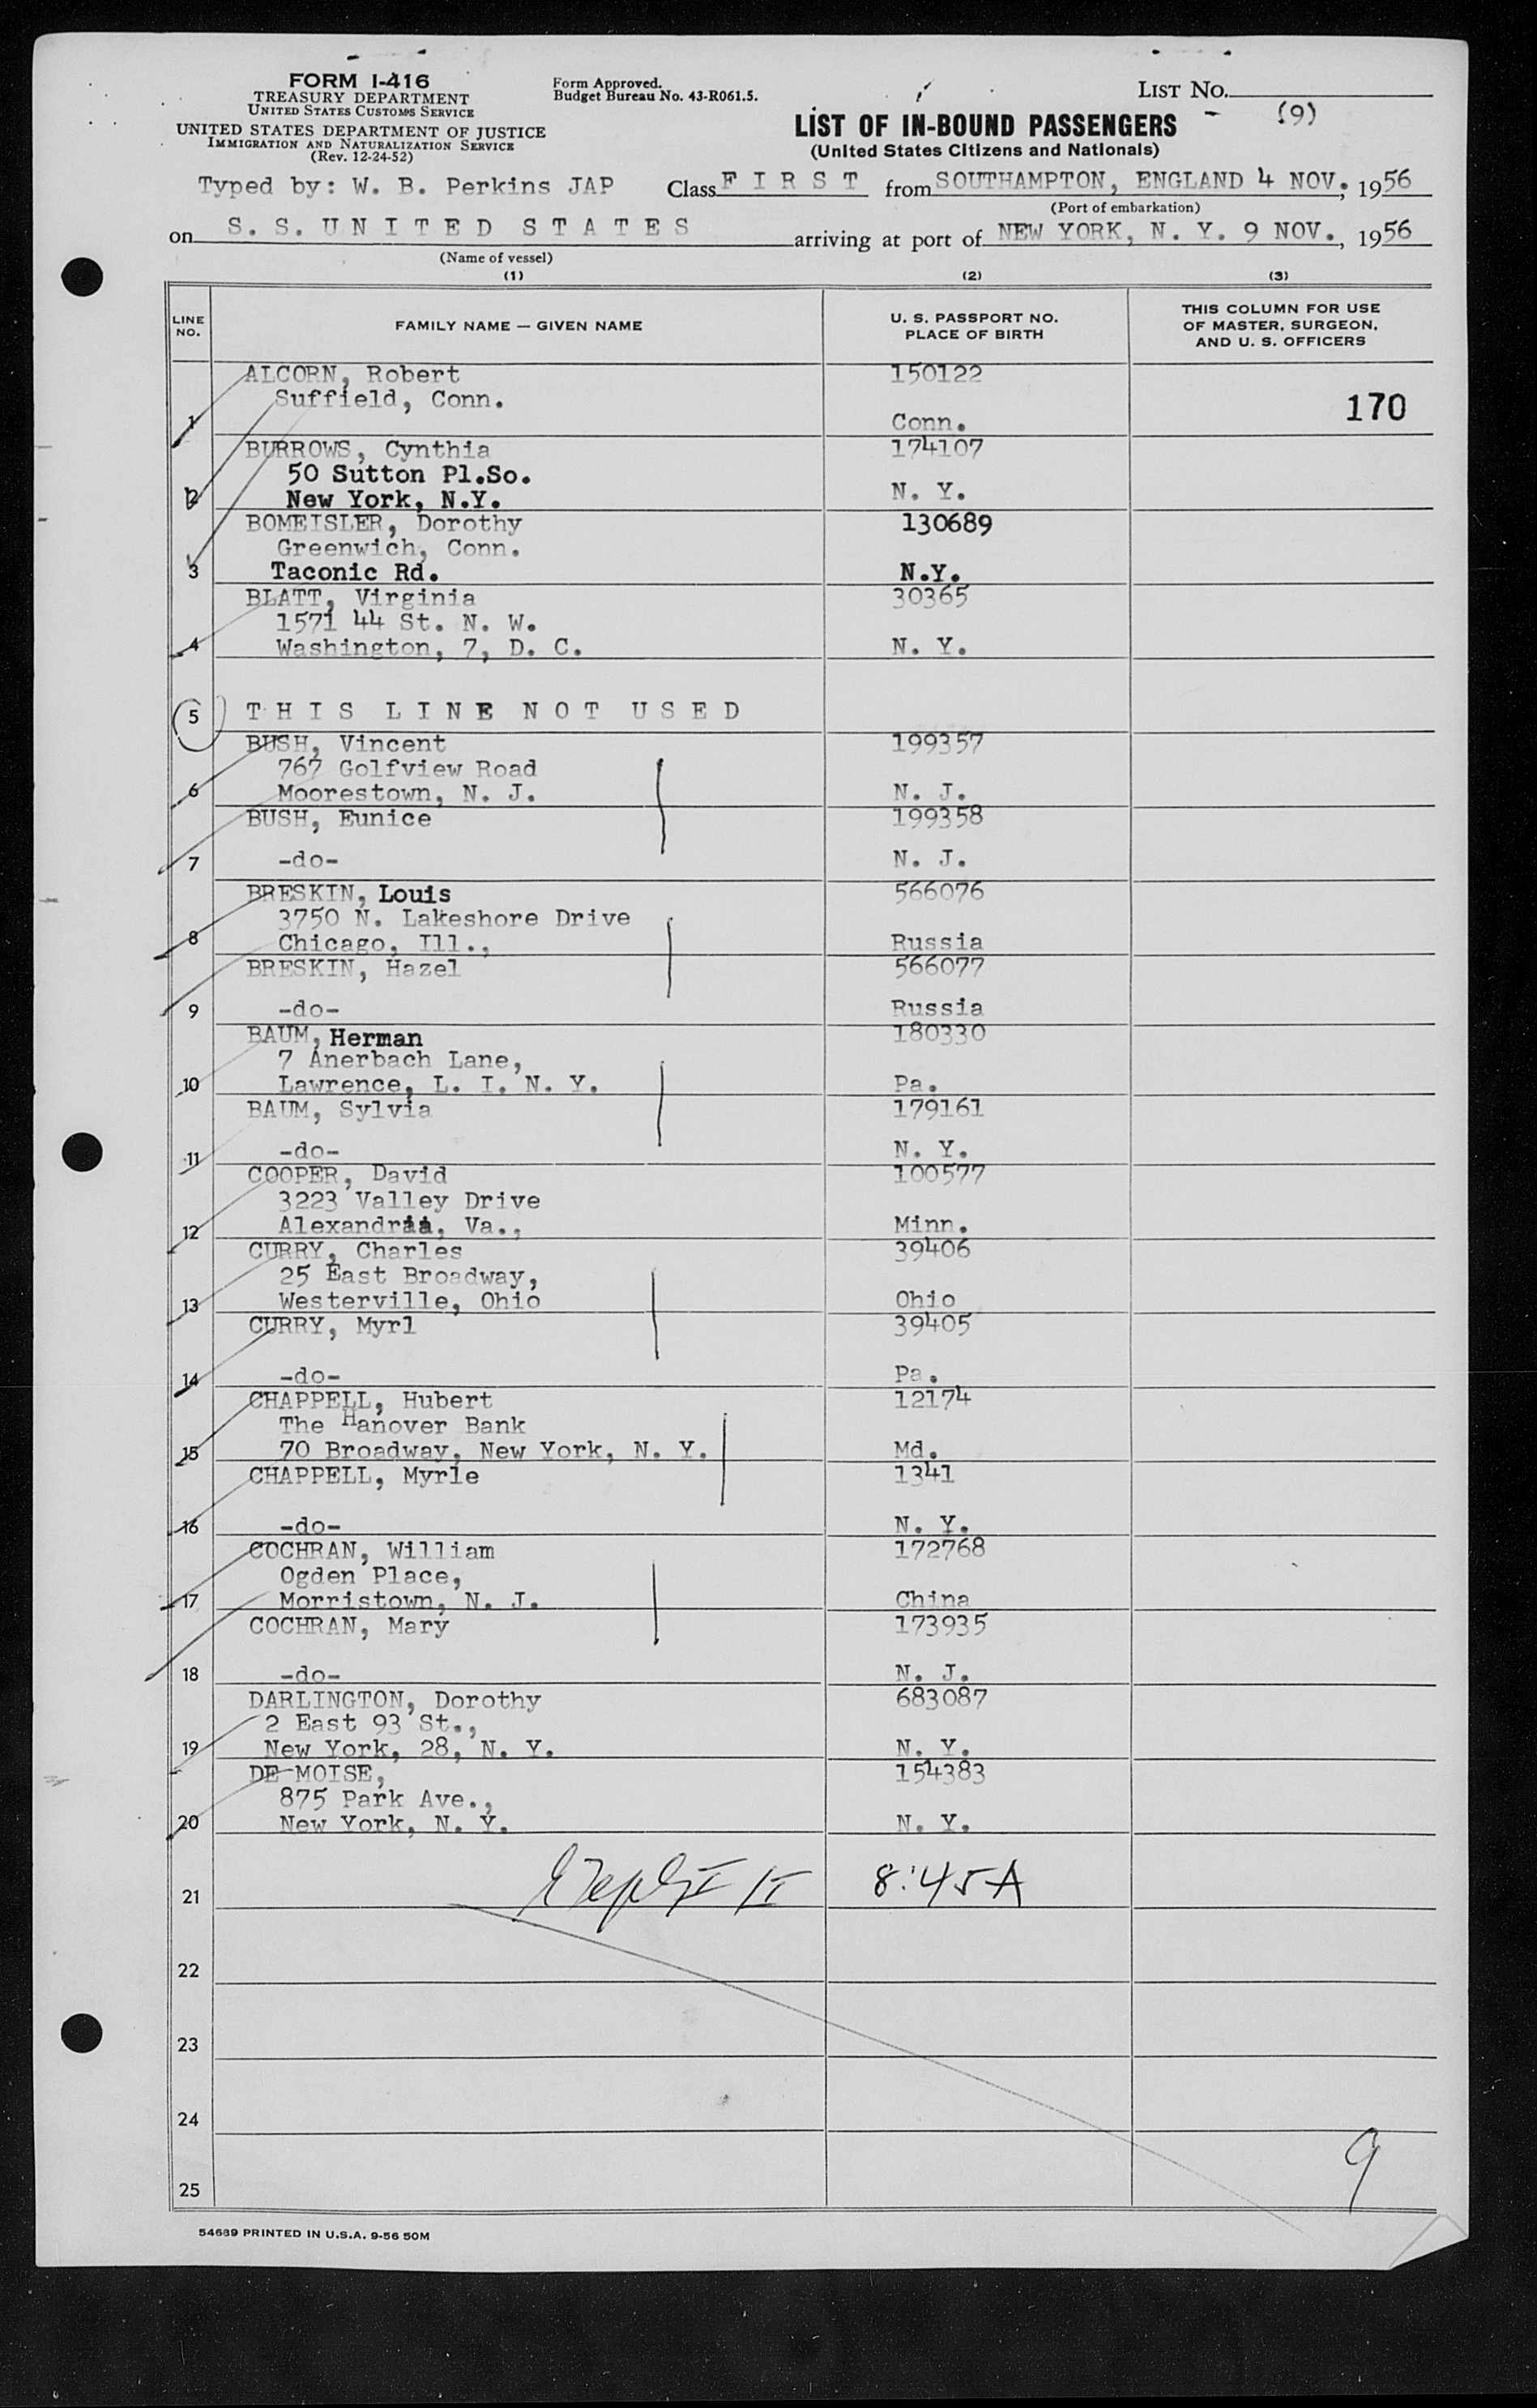 FORM I-416
TREASURY DEPARTMENT
UNITED STATES CUSTOMS SERVICE
UNITED STATES DEPARTMENT OF JUSTICE
IMMIGRATION AND NATURALIZATION SERVICE
(Rev. 12-24-52)
Form Approved.
Budget Bureau No. 43-R061.5.
LIST NO.
(9)
LIST OF IN-BOUND PASSENGERS
(United States Citizens and Nationals)
Typed by: W. B. Perkins JAP Class F I R S T from SOUTHAMPTON, ENGLAND 4 NOV., 1956
(Port of embarkation)
on S. S. U N I T E D S T A T E S arriving at port of NEW YORK, N. Y. 9 NOV., 1956
(Name of vessel)
(1) (2) (3)
LINE NO. FAMILY NAME — GIVEN NAME U. S. PASSPORT NO. PLACE OF BIRTH THIS COLUMN FOR USE OF MASTER, SURGEON, AND U. S. OFFICERS
ALCORN, Robert 150122
Suffield, Conn. 170
1 Conn.
BURROWS, Cynthia 174107
50 Sutton Pl.So.
2 New York, N.Y. N. Y.
BOMEISLER, Dorothy 130689
Greenwich, Conn.
3 Taconic Rd. N.Y.
BLATT, Virginia 30365
1571 44 St. N. W.
4 Washington, 7, D. C. N. Y.
5 T H I S L I N E N O T U S E D
BUSH, Vincent 199357
767 Golfview Road
6 Moorestown, N. J. N. J.
BUSH, Eunice 199358
7 -do- N. J.
BRESKIN, Louis 566076
3750 N. Lakeshore Drive
8 Chicago, Ill., Russia
BRESKIN, Hazel 566077
9 -do- Russia
BAUM, Herman 180330
7 Anerbach Lane,
10 Lawrence, L. I. N. Y. Pa.
BAUM, Sylvia 179161
11 -do- N. Y.
COOPER, David 100577
3223 Valley Drive
12 Alexandria, Va., Minn.
CURRY, Charles 39406
25 East Broadway,
13 Westerville, Ohio Ohio
CURRY, Myrl 39405
14 -do- Pa.
CHAPPELL, Hubert 12174
The Hanover Bank
15 70 Broadway, New York, N. Y. Md.
CHAPPELL, Myrle 1341
16 -do- N. Y.
COCHRAN, William 172768
Ogden Place,
17 Morristown, N. J. China
COCHRAN, Mary 173935
18 -do- N. J.
DARLINGTON, Dorothy 683087
2 East 93 St.,
19 New York, 28, N. Y. N. Y.
DE MOISE, 154383
875 Park Ave.,
20 New York, N. Y. N. Y.
21 8:45A
22
23
24
9
25
54689 PRINTED IN U.S.A. 9-56 50M